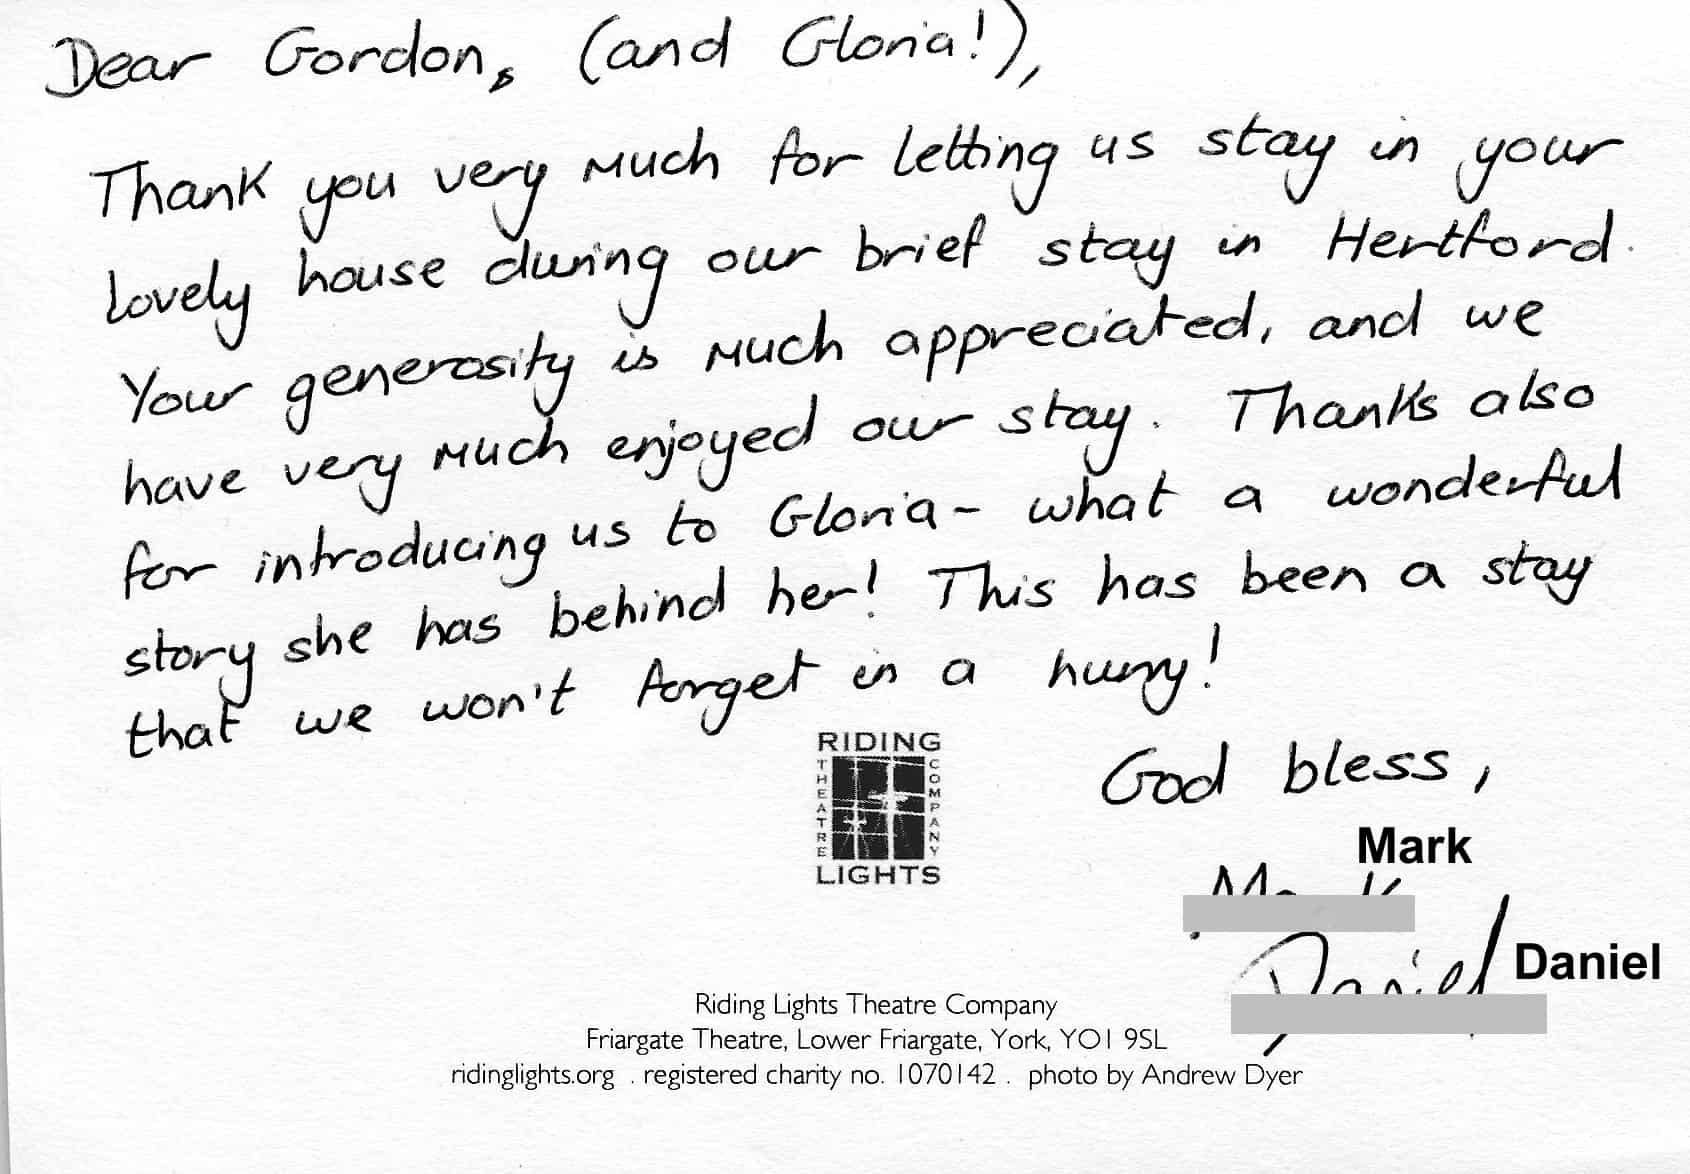 Dear Gordon, (and Gloria!),
Thank you very much for letting us stay in your
lovely house during our brief stay in Hertford.
Your generosity is much appreciated, and we
have very much enjoyed our stay. Thanks also
for introducing us to Gloria - what a wonderful
story she has behind her! This has been a stay
that we won't forget in a hurry!
RIDING
THEATRE
COMPANY
LIGHTS
God bless,
Mark
Mark
Daniel
Daniel
Riding Lights Theatre Company
Friargate Theatre, Lower Friargate, York, YO1 9SL
ridinglights.org . registered charity no. 1070142 . photo by Andrew Dyer